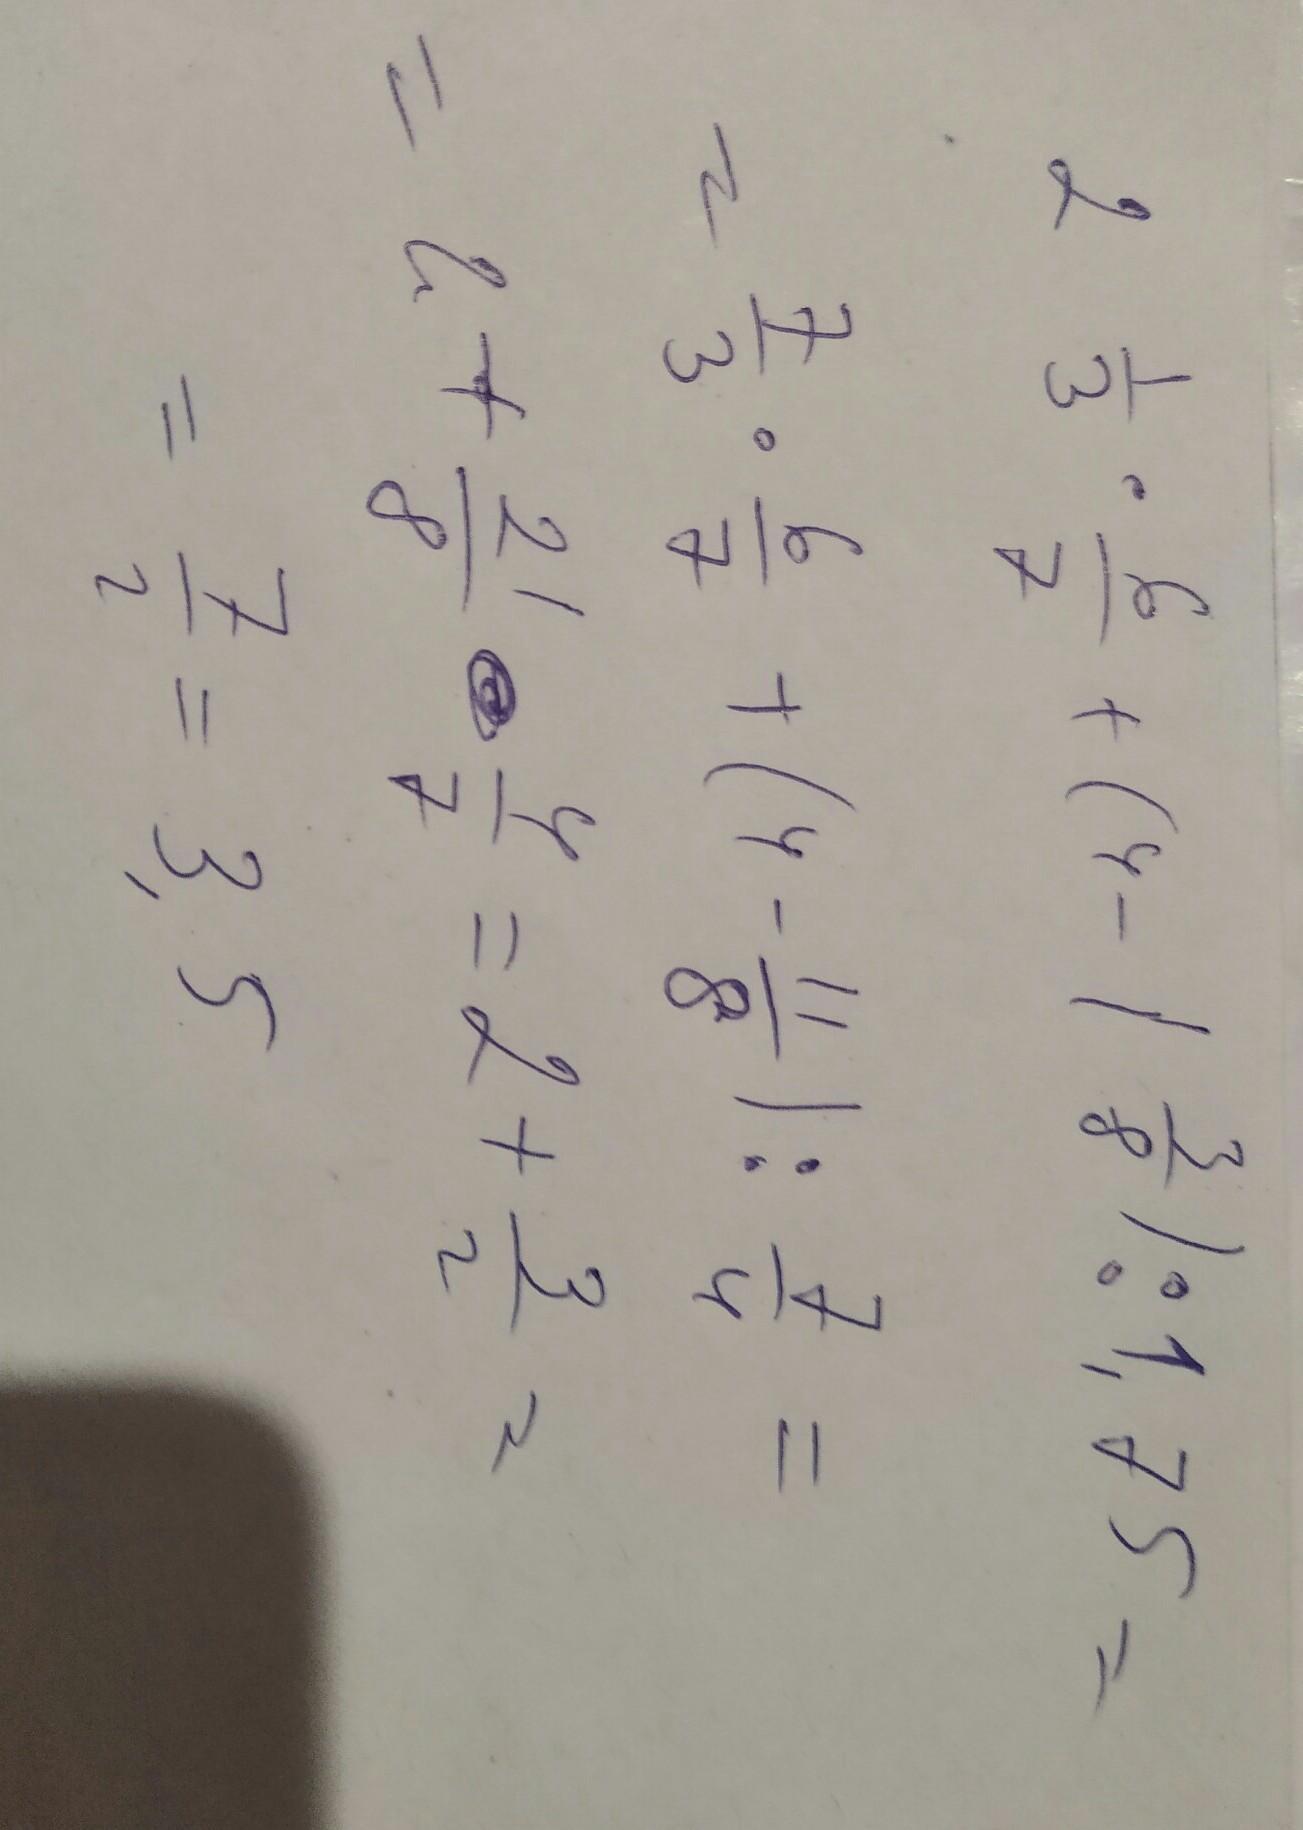 2 1/3 · 6/7 + (4 - 1 3/8) : 1,75 =
= 7/3 · 6/7 + (4 - 11/8) : 7/4 =
= 2 + 21/8 · 4/7 = 2 + 3/2 =
= 7/2 = 3,5